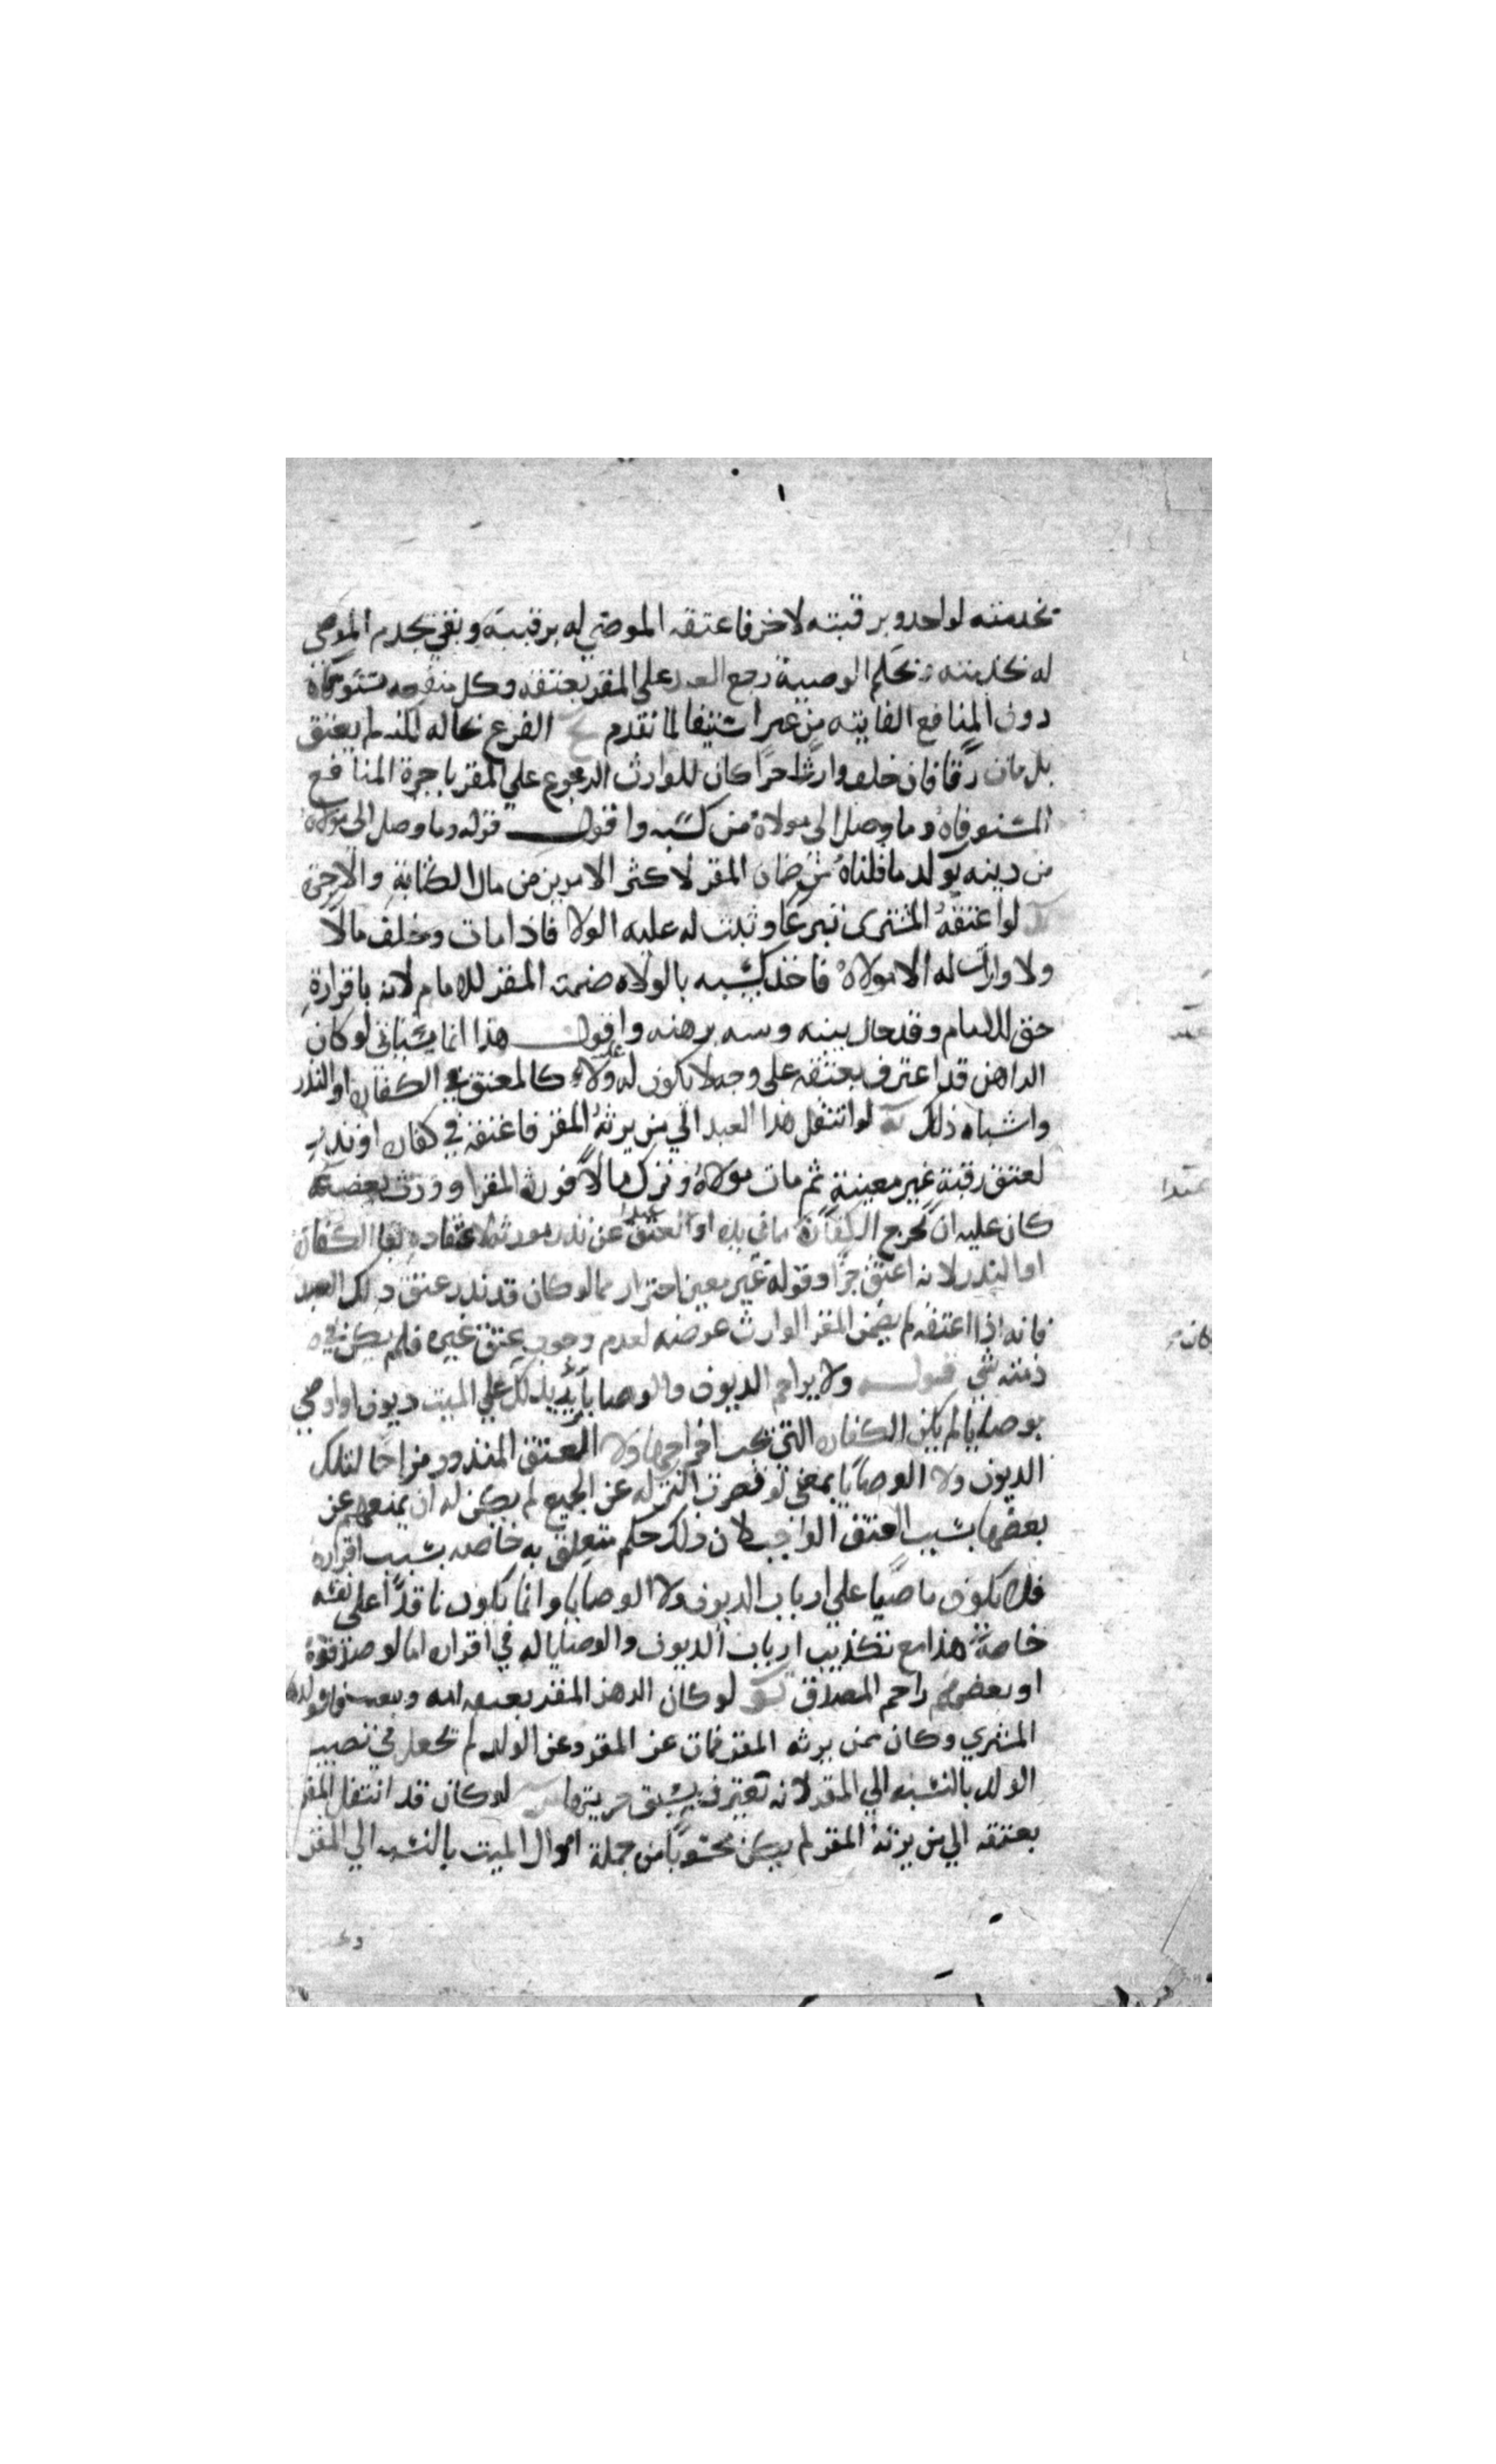 بخدمته لواحد وبرقبته لاخر فاعتقه الموصى له برقبته وبقي يخدم الموصى
له بخدمته بحكم الوصية رجع العبد على المقر بعتقه وكل منفعة
دون المنافع الفايتة من غير استيفا لما تقدم الفرع بحاله لكنه لم يعتق
بل مات رقا فان خلف وارثا حرا كان للوارث الرجوع على المقر باجرة المنافع
المستوفاة وما وصل الى مولاه من كسبه واقول قوله وما وصل الى مولاه
من دينه يولد ما قلناه من ضمان المقر لاكثر الامرين من مال الكتابة والاجرة
لو اعتقه المشترى تبرعا وثبت له عليه الولا فاذا مات وخلف مالا
ولا وارث له الا مولاه فاخذ كسبه بالولاء ضمنه المقر للامام لانه باقراره
حق للامام وقد حال بينه وبينه برهنه واقول هذا انما يتاتى لو كان
الراهن قد اعترف بعتقه على وجه لا يكون له عليه ولاء كالمعتق في الكفاره او النذر
واشباه ذلك لو انتقل هذا العبد الى من يرثه المقر فاعتقه في كفاره او نذر
لعتق رقبة غير معينة ثم مات مولاه وترك مالا فورثه المقر او ورث بعضه
كان عليه ان يخرج الكفارة مما في يده او العتق عن نذر مورثه لاعتقاده بقا الكفارة
او النذر لانه اعتق حرا وقوله غير معين احتراز مما لو كان قد نذر عتق ذلك العبد
فانه اذا اعتقه لم يضمن المقر الوارث عوضه لعدم وجوب عتق غيره فلم يكن في
ذمته شي قوله ولا يزاحم الديون والوصايا يريد لو كان على الميت ديون او اوصى
بوصايا لم يكن الكفاره التي يجب اخراجها ولا العتق المنذور مزاحما لتلك
الديون ولا الوصايا بمعنى لو قصرت التركه عن الجميع لم يكن له ان يمنعهم عن
بعضها بسبب العتق الواجب لان ذلك حكم متعلق به خاصه بسبب اقراره
فلا يكون ماضيا على ارباب الديون ولا الوصايا وانما يكون نافذا على نفسه
خاصة هذا مع تكذيب ارباب الديون والوصايا له في اقراره اما لو صدقوه
او بعضهم زاحم المصدق لو كان الرهن المقر بعتقه امه
المشتري وكان ممن يرثه المقر فمات عن المقر وعن الولد لم تجعل في نصيب
الولد بالنسبه الى المقر لانه يعترف بسبق حريتها لو كان قد انتقل المقر
بعتقه الى من يرثه المقر لم يكن محسوبا من جملة اموال الميت بالنسبه الى المقر